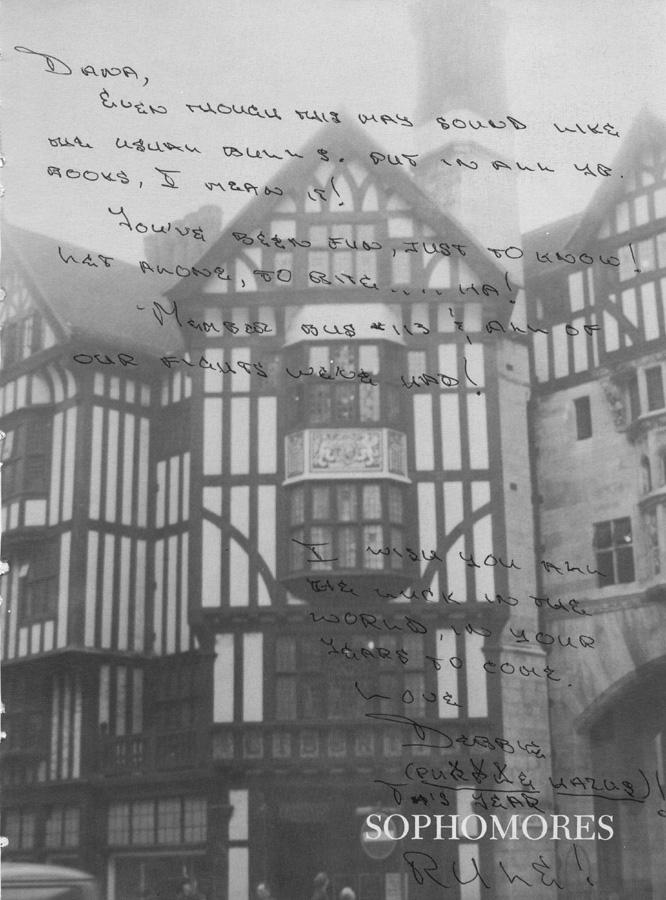 DANA,
EVEN THOUGH THIS MAY SOUND LIKE
THE USUAL BULL S. PUT IN ALL YR.
BOOKS, I MEAN IT!
YOU'VE BEEN FUN, JUST TO KNOW!
LET ALONE, TO BITE.... HA!
-MEMBER BUS #113 & ALL OF
OUR FIGHTS WE'VE HAD!
I WISH YOU ALL
THE LUCK IN THE
WORLD, IN YOUR
YEARS TO COME.
LOVE
DEBBIE
THIS YEAR
SOPHOMORES
RULE!